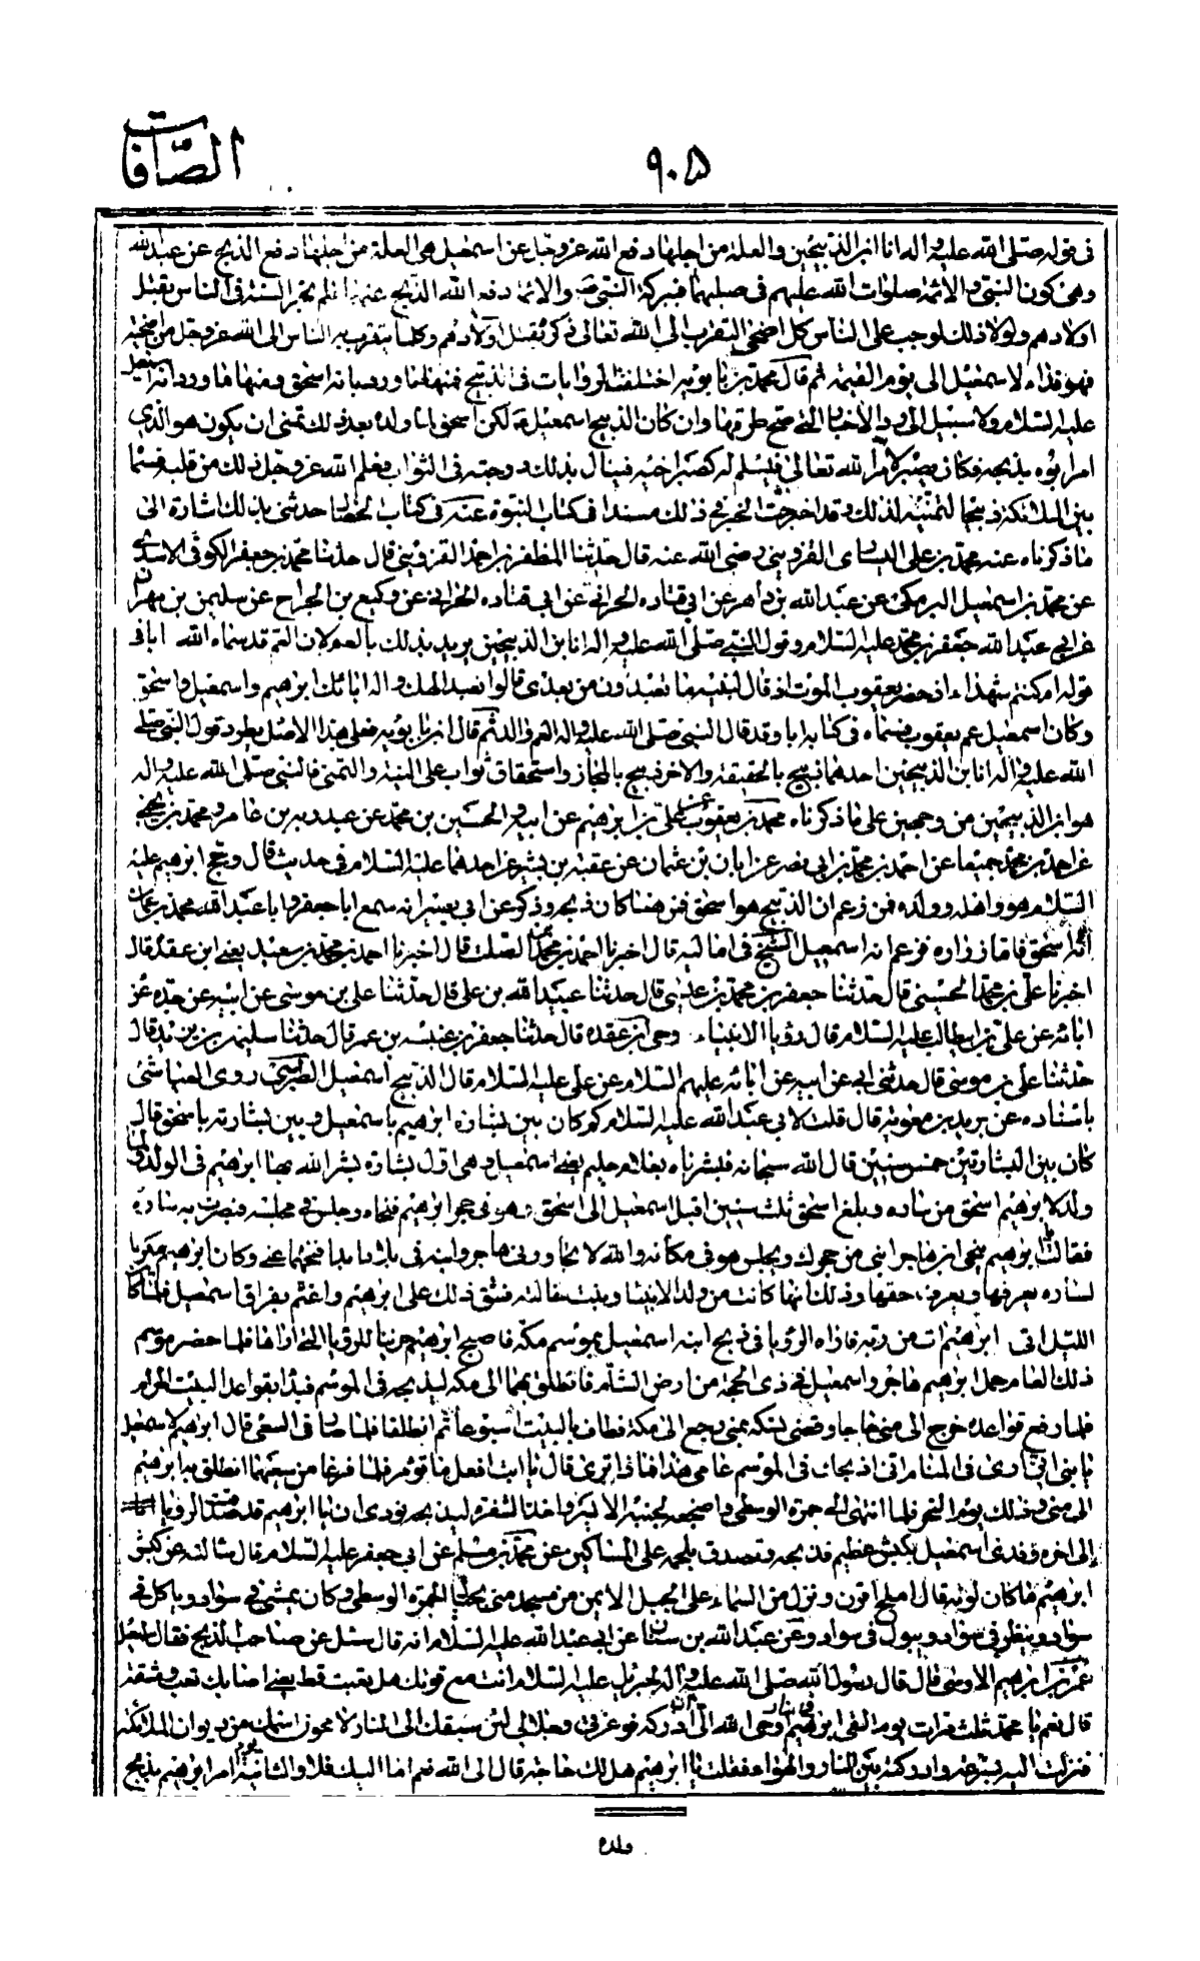 الصّافات
٩٠٥
فى قوله صلى الله عليه واله انا ابن الذبيحين والعلة من اجلها دفع الله عز وجل عن اسمعيل هى العلة من اجلها دفع الذبح عن عبد الله
وهى كون النبى والائمة صلوات الله عليهم فى صلبهما فببركة النبى والائمة دفع الله الذبح عنهما فلم تجر السنة فى الناس بقتل
اولادهم ولولا ذلك لوجب على الناس كل اضحى التقرب الى الله تعالى ذكره بقتل اولادهم وكلما يتقرب به الناس الى الله عز وجل من اضحية
فهو فداء لاسمعيل الى يوم القيمة ثم قال محمد بن بابويه اختلفت الروايات فى الذبيح فمنها ما ورد بانه اسحق ومنها ما ورد بانه اسمعيل
عليه السلام ولا سبيل الى رد الاخبار التى صح طرقها وان كان الذبيح اسمعيل لكن اسحق لما ولد بعد ذلك تمنى ان يكون هو الذى
امر ابوه بذبحه فكان يصبر لامر الله تعالى ويسلم له كصبر اخيه فينال بذلك درجته فى الثواب فعلم الله عز وجل ذلك من قلبه فسماه
بين الملائكة ذبيحا لتمنيه لذلك وقد اخرجت الخبر فى ذلك مسندا فى كتاب النبوة عنه فى كتاب الخصال حدثنى بذلك اشارة الى
ما ذكرناه عنه محمد بن على القزوينى رضى الله عنه قال حدثنا المظفر بن احمد القزوينى قال حدثنا محمد بن جعفر الكوفى الاسدى
عن محمد بن اسمعيل البرمكى عن عبد الله بن داهر عن ابى قتادة الحرانى عن وكيع بن الجراح عن سليمن بن مهران
عن ابى عبد الله جعفر بن محمد عليه السلام وقول النبى صلى الله عليه واله انا ابن الذبيحين يريد بذلك بالعم لان العم قد سماه الله ابا فى
قوله ام كنتم شهداء اذ حضر يعقوب الموت اذ قال لبنيه ما تعبدون من بعدى قالوا نعبد الهك واله ابائك ابرهيم واسمعيل واسحق
وكان اسمعيل عم يعقوب فسماه فى كتابه ابا وقد قال النبى صلى الله عليه واله العم والد ثم قال ابن بابويه فعلى هذا الاصل يطرد قول النبى صلى
الله عليه واله انا ابن الذبيحين احدهما ذبيح بالحقيقة والاخر ذبيح بالمجاز واستحقاق ثواب على النية والتمنى فالنبى صلى الله عليه واله
هو ابن الذبيحين من وجهين على ما ذكرناه محمد بن يعقوب عن على بن ابرهيم عن ابيه والحسين بن محمد عن عبدويه بن عامر ومحمد بن يحيى
عن احمد بن محمد جميعا عن احمد بن محمد بن ابى نصر عن ابان بن عثمان عن عقبة بن بشير عن احدهما عليه السلام فى حديث قال وحج ابرهيم عليه
السلام هو واهله وولده فمن زعم ان الذبيح هو اسحق فمن هنا كان ذبحه وذكر عن ابى بصير انه سمع ابا جعفر وابا عبد الله
انه اسحق فاما زرارة فزعم انه اسمعيل الشيخ فى اماليه قال اخبرنا احمد بن محمد بن الصلت قال اخبرنا احمد بن محمد بن سعيد يعنى ابن عقدة قال
اخبرنا على بن محمد الحسينى قال حدثنا جعفر بن محمد بن عيسى قال حدثنا عبيد الله بن على قال حدثنا على بن موسى عن ابيه عن جده عن
ابائه عن على بن ابيطالب عليه السلام قال رؤيا الانبياء وحى ابن عقدة قال حدثنا جعفر بن عنبسة بن عمر قال حدثنا سليمن بن يزيد قال
حدثنا على بن موسى قال حدثنى ابى عن ابيه عن ابائه عليهم السلام عن على عليه السلام قال الذبيح اسمعيل الطبرسى روى العياشى
باسناده عن بريد بن معوية قال قلت لابى عبد الله عليه السلام كم كان بين بشارة ابرهيم باسمعيل وبين بشارته باسحق قال
كان بين البشارتين خمس سنين قال الله سبحانه فبشرناه بغلام حليم يعنى اسمعيل وهى اول بشارة بشر الله بها ابرهيم فى الولد ولما
ولد لابرهيم اسحق من سارة وبلغ اسحق ثلث سنين اقبل اسمعيل الى اسحق وهو فى حجر ابرهيم فنحاه وجلس فى مجلسه فبصرت به سارة
فقالت يا ابرهيم ينحى ابن هاجر ابنى من حجرك ويجلس هو فى مكانه والله لا تجاورنى هاجر وابنها فى بلاد ابدا فنحهما عنى وكان ابرهيم مكرما
لسارة يعزها ويعرف حقها وذلك انها كانت من ولد الانبياء وبنت خالته فشق ذلك على ابرهيم واغتم بفراق اسمعيل فلما كان
الليل اتى ابرهيم ات من ربه فاراه الرؤيا فى ذبح ابنه اسمعيل بموسم مكة فاصبح ابرهيم حزينا للرؤيا التى راها فلما حضر موسم
ذلك العام حمل ابرهيم هاجر واسمعيل فى ذى الحجة من ارض الشام فانطلق بهما الى مكة ليذبحه فى الموسم فبدا بقواعد البيت الحرام
فلما رفع قواعده خرج الى منى حاجا وقضى نسكه بمنى ورجع الى مكة فطاف بالبيت اسبوعا ثم انطلقا فلما صارا فى السعى قال ابرهيم لاسمعيل
يا بنى انى ارى فى المنام انى اذبحك فى الموسم عامى هذا فماذا ترى قال يا ابت افعل ما تؤمر فلما فرغا من سعيهما انطلق به ابرهيم
الى منى وذلك يوم النحر فلما انتهى الى جمرة الوسطى واضجعه لجنبه الايسر واخذ الشفرة ليذبحه نودى ان يا ابرهيم قد صدقت الرؤيا
الى اخره وفدى اسمعيل بكبش عظيم فذبحه وتصدق بلحمه على المساكين عن محمد بن مسلم عن ابى جعفر عليه السلام قال سالته عن كبش
ابرهيم ما كان لونه قال املح اقرن ونزل من السماء على الجبل الايمن من مسجد منى بحيال الجمرة الوسطى وكان يمشى فى سواد وياكل فى
سواد وينظر فى سواد ويبول فى سواد وعن عبد الله بن سنان عن ابى عبد الله عليه السلام انه سئل عن صاحب الذبح فقال اسمعيل
عمر بن ابرهيم الاوسى قال قال رسول الله صلى الله عليه واله لجبرئيل عليه السلام انت مع قوتك هل تعبت قط يعنى اصابك تعب ومشقة
قال نعم يا محمد ثلث مرات يوم القى ابرهيم فى النار اوحى الله الى ان ادركه فوعزتى وجلالى لئن سبقك الى النار لامحون اسمك من ديوان الملائكة
فنزلت اليه بسرعة وادركته بين النار والهواء فقلت يا ابرهيم هل لك حاجة قال الى الله نعم اما اليك فلا والثانية امر ابرهيم بذبح
ولده